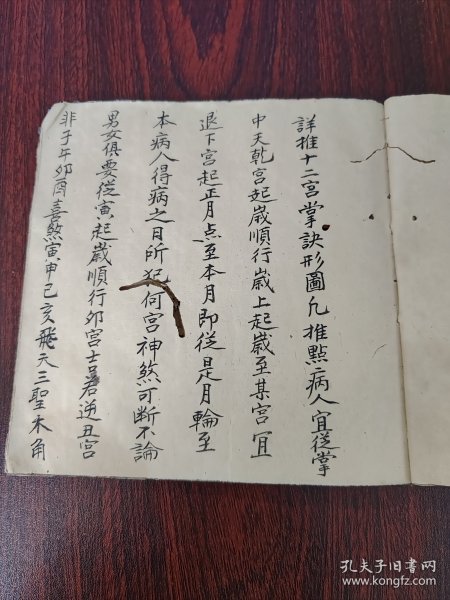 詳推十二宮掌訣形圖凡推點病人宜從掌
中天乾宮起歲順行歲上起歲至某宮宜
退下宮起正月点至本月即從是月輪至
本病人得病之日所犯何宮神煞可断不論
男女俱要從寅起歲順行卯宮士若逆丑宮
非子午卯酉喜煞寅申巳亥飛天三聖木角
孔夫子旧书网
www.kongfz.com